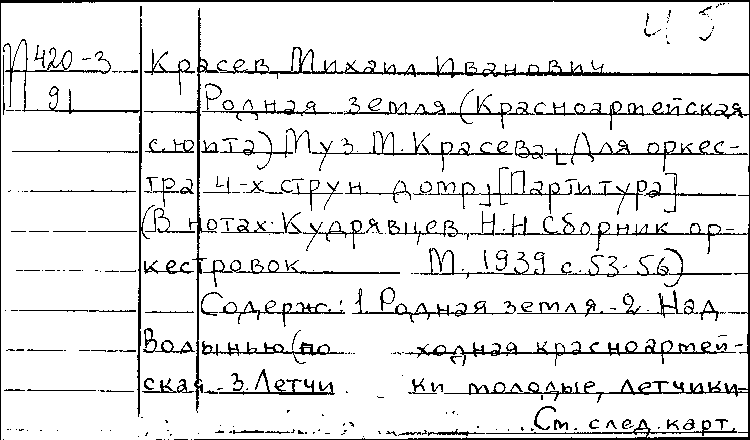 45
П420-3 Красев, Михаил Иванович
91 Родная земля (Красноармейская
сюита) Муз М. Красева [Для оркес-
тра 4-х струн домр] [Партитура]
(В нотах: Кудрявцев, Н.Н Сборник ор-
кестровок М., 1939 с. 53-56)
Содерж.: 1. Родная земля. - 2. Над
Волынью (по ходная красноармей-
ская - 3. Летчи ки молодые, летчики-
См. след. карт.